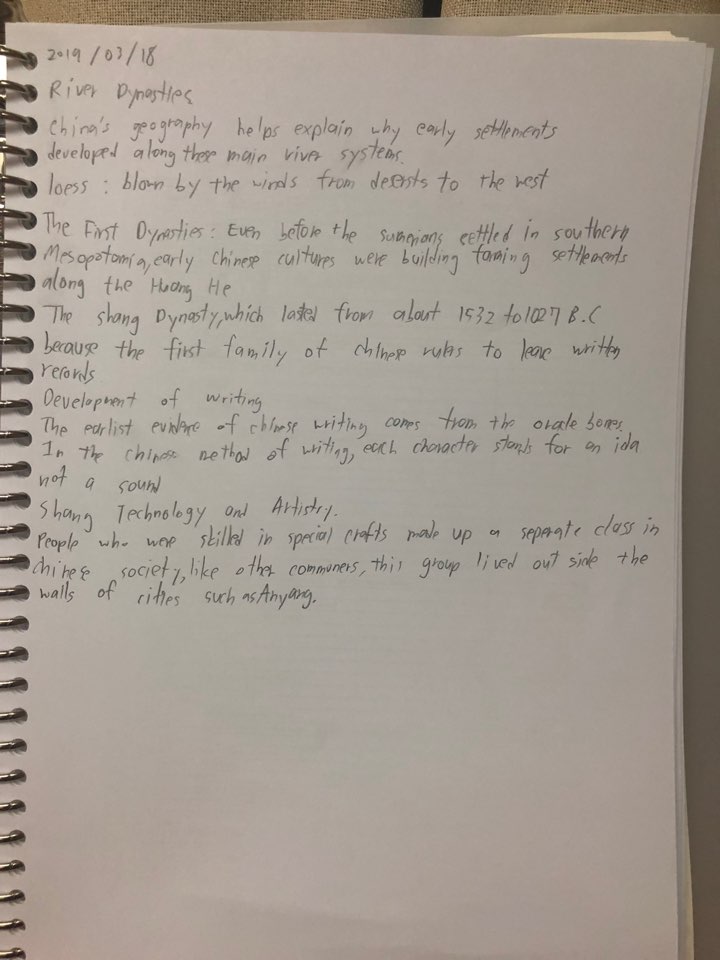 2019/03/18
River Dynasties
China's geography helps explain why early settlements
developed along these main river systems.
loess : blown by the winds from deserts to the west
The First Dynasties : Even before the sumerians settled in southern
Mesopotamia, early Chinese cultures were building faming settlements
along the Huang He
The shang Dynasty, which lasted from about 1532 to 1027 B.C
because the first family of chinese rulers to leave written
records
Development of writing
The earlist evidence of chinese writing comes from the oracle bones.
In the chinese method of writing, each character stands for an ida
not a sound
Shang Technology and Artistry.
People who were skilled in special crafts made up a seperate class in
chinese society, like other commuers, this group lived out side the
walls of cities such as Anyang.